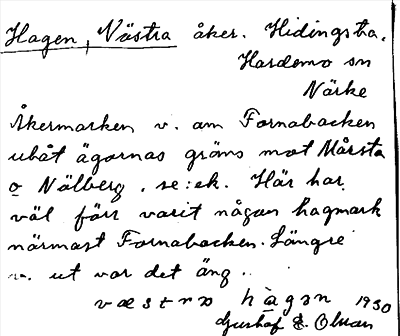 Hagen, Västra åker. Hidingsta.
Hardemo sn
Närke
Åkermarken v. om Fornabacken
utåt ägornas gräns mot Mårsta
o Nälberg. se: ek. Här har
väl förr varit någon hagmark
närmast Fornabacken. Längre
v. ut var det äng.
væstra hàgan 1930
Gustaf E. Olsson